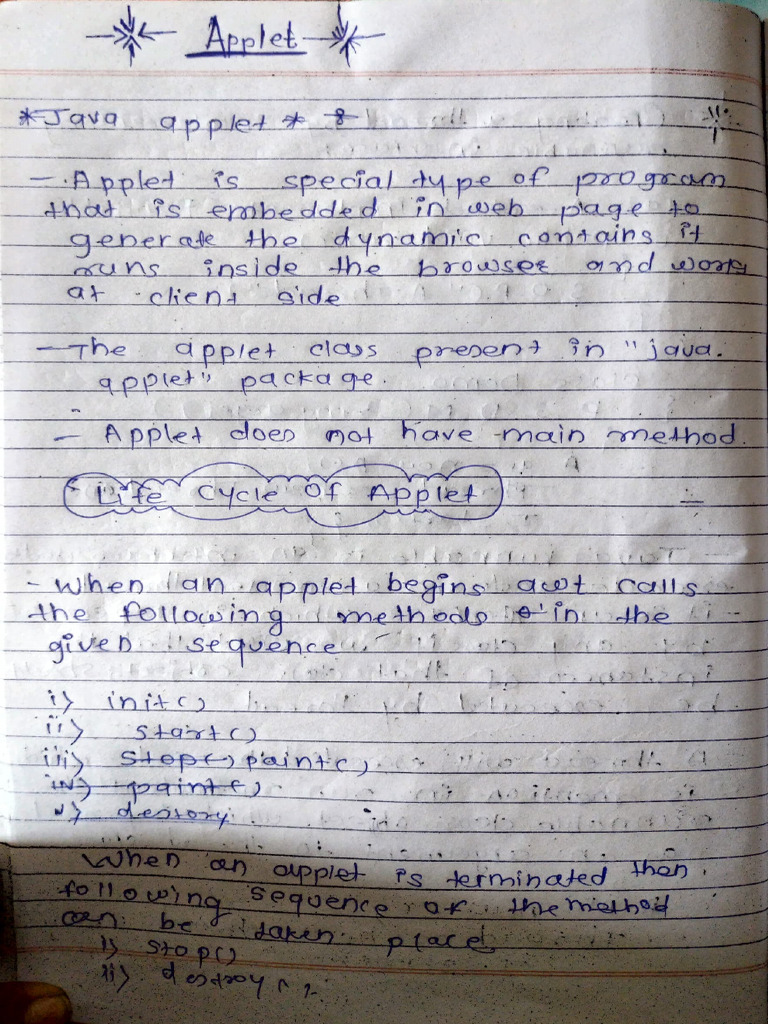 Applet
*Java applet * :-
- Applet is special type of program
that is embedded in web page to
generate the dynamic contains it
runs inside the browser and works
at client side
- The applet class present in "java.
applet" package.
- Applet does not have main method.
Life Cycle Of Applet
- When an applet begins awt calls
the following methods in the
given sequence
i) init()
ii) start()
iii) stop() paint()
iv) paint()
v) destory
When an applet is terminated then
following sequence of the method
can be taken place
i) stop()
ii) destroy()